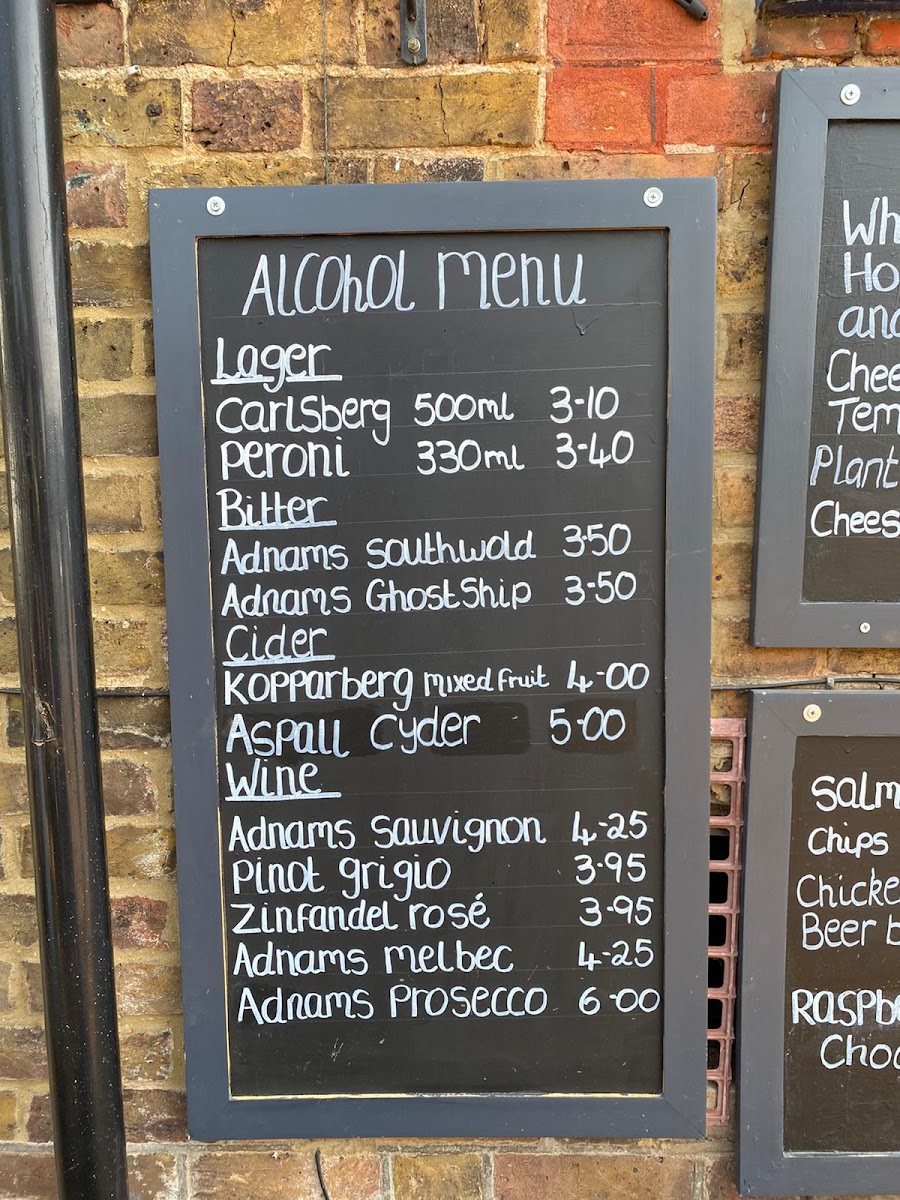 Alcohol Menu
Lager
Carlsberg 500ml 3-10
Peroni 330ml 3-40
Bitter
Adnams Southwold 3.50
Adnams GhostShip 3-50
Cider
Kopparberg mixed fruit 4-00
Aspall Cyder 5.00
Wine
Adnams Sauvignon 4-25
Pinot grigio 3.95
Zinfandel rosé 3-95
Adnams Melbec 4-25
Adnams Prosecco 6.00
and
Plant
Chips
Beer